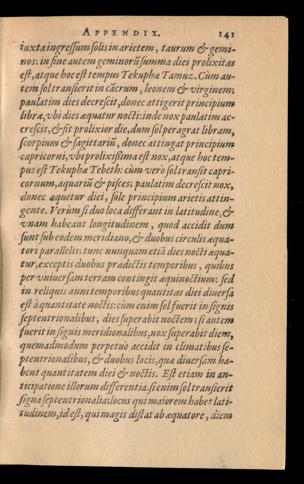 APPENDIX. 141
iuxta ingressum solis in arietem, taurum & gemi-
nos: in fine autem geminorū summa diei prolixitas
est, atque hoc est tempus Tekuphæ Tamuz. Cùm au-
tem sol transierit in cācrum, leonem & virginem;
paulatim dies decrescit, donec attigerit principium
libræ, vbi dies æquatur nocti: inde nox paulatim ac-
crescit, & fit prolixior die, dum sol peragrat libram,
scorpium & sagittariū, donec attingat principium
capricorni, vbi prolixissima est nox, atque hoc tem-
pus est Tekuphæ Tebeth: cùm verò sol transit capri-
cornum, aquariū & pisces; paulatim decrescit nox,
donec æquetur diei, sole principium arietis attin-
gente. Verùm si duo loca differant in latitudine, &
vnam habeant longitudinem, quod accidit dum
sunt sub eodem meridiano, & duobus circulis æqua-
tori parallelis; tunc nunquam etiā dies nocti æqua-
tur, exceptis duobus prædictis temporibus, quibus
per vniuersam terram contingit æquinoctium: sed
in reliquis anni temporibus quantitas diei diuersa
est à quantitate noctis: cùm enim sol fuerit in signis
septentrionalibus, dies superabit noctem; si autem
fuerit in signis meridionalibus, nox superabit diem,
quemadmodum perpetuò accidit in climatibus se-
ptentrionalibus, & duobus locis, quæ diuersam ha-
bent quantitatem diei & noctis. Est etiam in an-
ticipatione illorum differentia. si enim sol transierit
signa septentrionalia: locus qui maiorem habet lati-
tudinem, id est, qui magis distat ab æquatore, diem